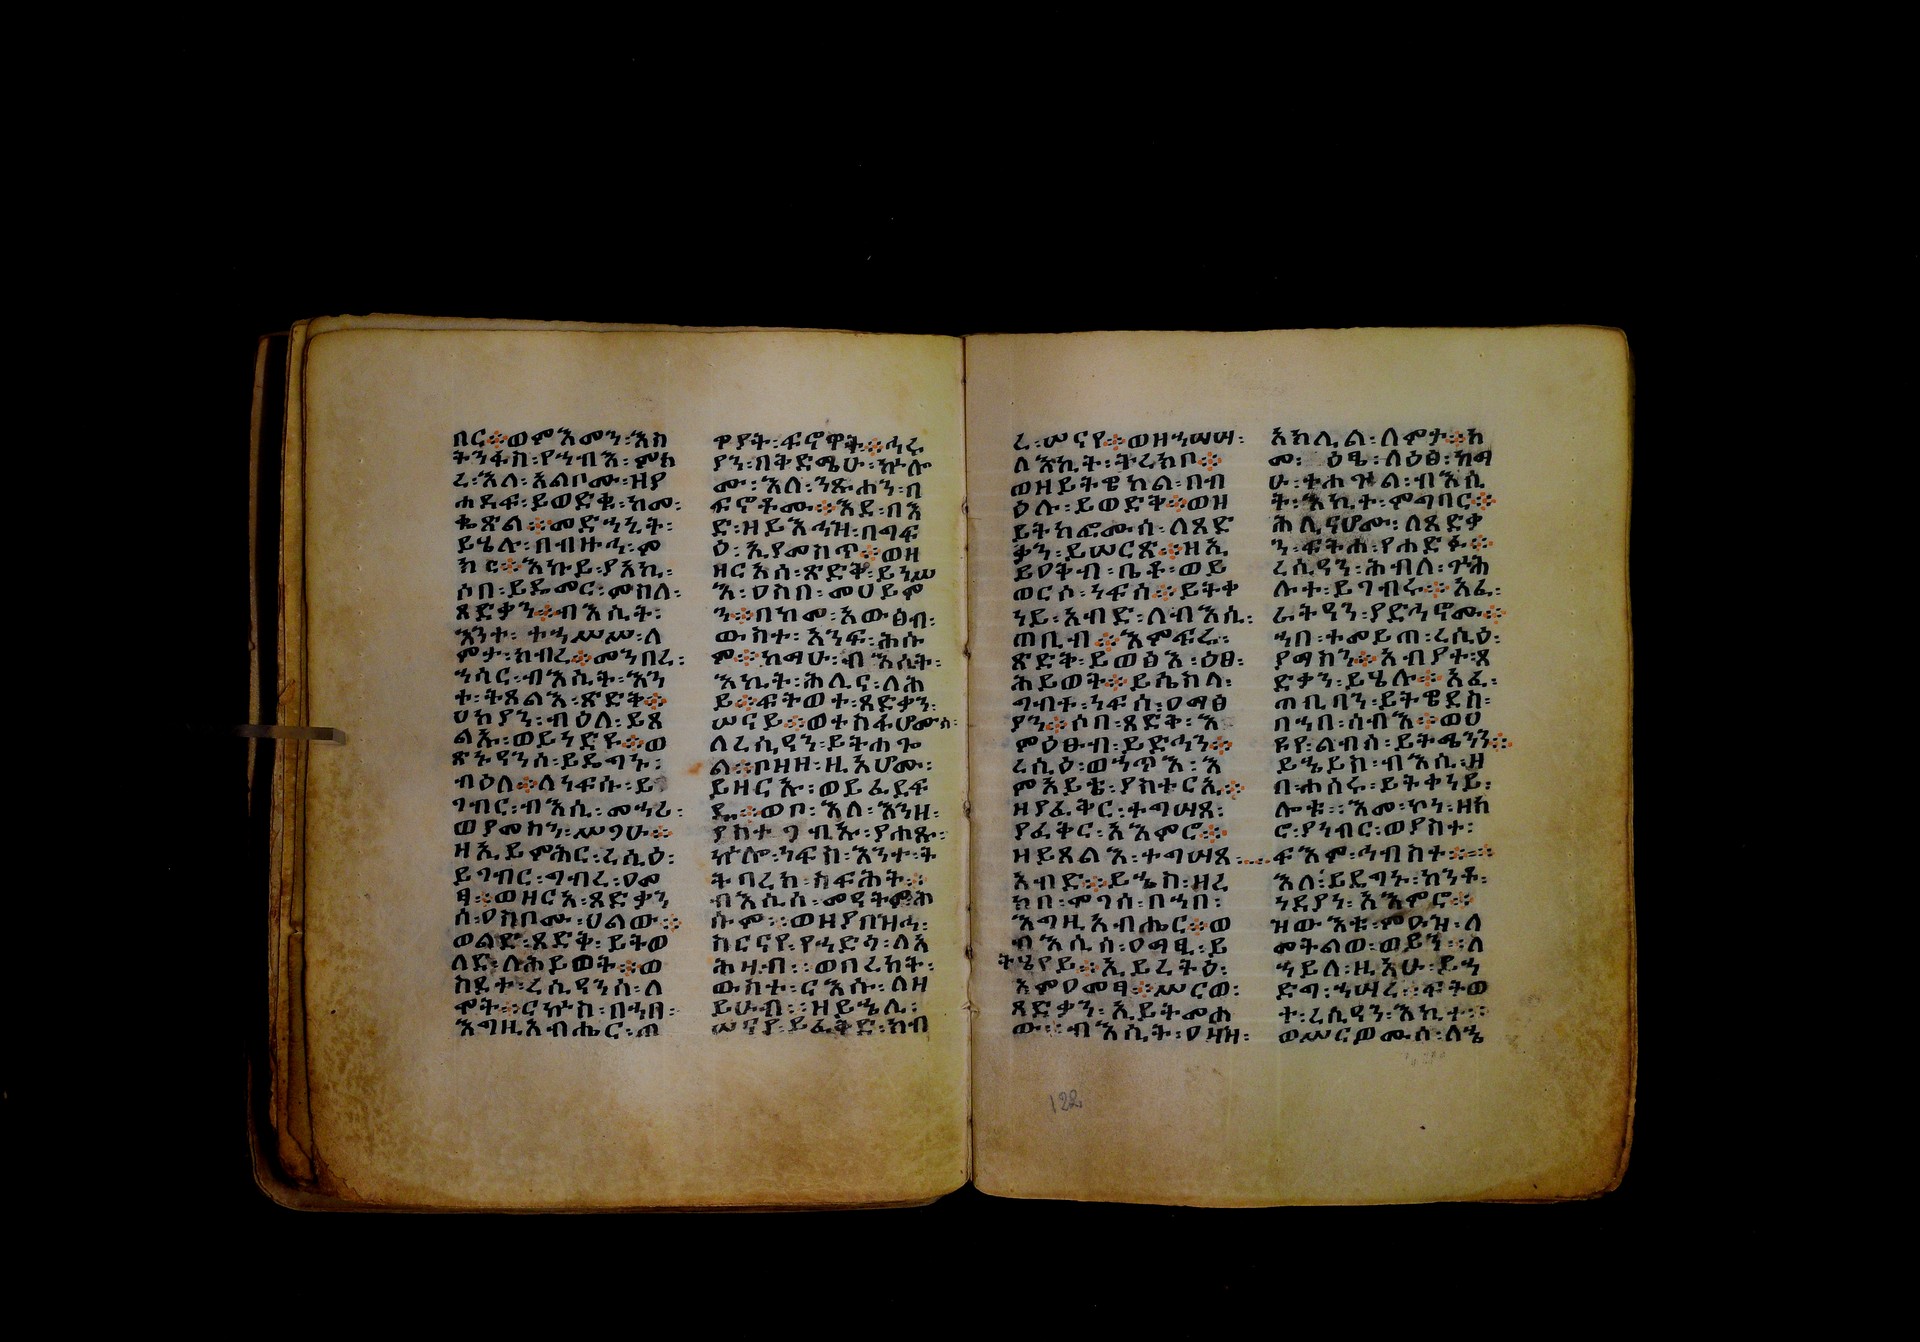 በር፨ወምእመን፡እስ
ትንፋስ፡የኀብእ፡ምስ
ረ፡እለ፡አልቦሙ፡ዘያ
ሐደፍ፡ይወድቁ፡ከመ፡
ቈጽል፨መድኀኒት፡
ይሄሉ፡በብዙኅ፡ም
ክር፨እኩይ፡ያአኪ፡
ሶበ፡ይዴመር፡ምስለ፡
ጻድቃን፨ብእሲት፡
እንተ፡ ተኀሥሥ፡ለ
ምታ፡ክብረ፨መንበረ፡
ኀሳር፡ብእሲት፡እን
ተ፡ትጸልእ፡ጽድቅ፨
ሀካያን፡ብዕለ፡ይጸ
ልኡ፡ወይነድዩ፨ወ
ጽኑዓንሰ፡ይዴግኑ፡
ብዕለ፨ለነፍሱ፡ይ
ገብር፡ብእሲ፡መሓሪ፡
ወያመክን፡ሥጋሁ፨
ዘኢይምሕር፡ረሲዕ፡
ይገብር፡ግብረ፡ዐመ
ፃ፨ወዘርአ፡ጻድቃን
ሰ፡ዐስቦሙ፡ሀልው፨
ወልድ፡ጻድቅ፡ይትወ
ለድ፡ለሕይወት፨ወ
ስደተ፡ረሲዓንሰ፡ለ
ሞት፨ርኩስ፡በኀበ፡
እግዚአብሔር፡ጠ
ዋያት፡ፍኖዋት፨ኅሩ
ያን፡በቅድሜሁ፡ኵሎ
ሙ፡እለ፡ንጹሐን፡በ
ፍኖቶሙ፨እደ፡በእ
ድ፡ዘይእኅዝ፡በግፍ
ዕ፡ኢየመስጥ፨ወዘ
ዘርአሰ፡ጽድቅ፡ይነሥ
እ፡ዐስበ፡መሀይም
ን፨በከመ፡አውፅብ፡
ውስተ፡አንፍ፡ሕሱ
ም፨ከማሁ፡ብእሲት፡
እኪት፡ሕሊና፡ለሕ
ይ፨ፍትወተ፡ጻድቃን፡
ሠናይ፨ወተስፋሆሙሰ፡
ለረሲዓን፡ይትሐጐ
ል፨ቦዘዘ፡ዚአሆሙ፡
ይዘርኡ፡ወይፈደፍ
ዱ፨ወቦ፡እለ፡እንዘ፡
ያስተጋብኡ፡ያሐጽጹ፡
ኵሎ፡ነፍስ፡እንተ፡ት
ትባረክ፡ስፍሕት፨
ብእሲሰ፡መዓትምሕ
ሱም፨ወዘያበዝኅ፡
ስርናየ፡የኀድጎ፡ለአ
ሕዛብ፨ወበረከት፡
ውስተ፡ርእሱ፡ለዘ
ይሁብ፨ዘይኄሊ፡
ሠናየ፡ይፈቅድ፡ከብ
ረ፡ሠናየ፨ወዘኀሠሠ፡
ለእኪት፡ትረክቦ፨
ወዘይትዌከል፡በብ
ዕሉ፡ይወድቅ፨ወዘ
ይትከፈሙሰ፡ለጻድ
ቃን፡ይሠርጽ፨ዘኢ
ይዐቅብ፡ቤቶ፡ወይ
ወርሶ፡ነፍሰ፨ይትቀ
ነይ፡አብድ፡ለብእሲ፡
ጠቢብ፨እምፍሬ፡
ጽድቅ፡ይወፅእ፡ዕፀ፡
ሕይወት፨ይሴስላ፡
ግብተ፡ነፍሰ፡ዐማፅ
ያን፨ሶበ፡ጻድቅ፡እ
ምዕፁብ፡ይድኅን፨
ረሲዕ፡ወኃጥእ፡እ
ምአይቴ፡ያስተርኢ፨
ዘያፈቅር፡ተግሣጸ፡
ያፈቅር፡አእምሮ፨
ዘይጸልእ፡ተግሣጸ፡
አብድ፨ይኄስ፡ዘረ
ከበ፡ሞገሰ፡በኀበ፡
እግዚአብሔር፨ወ
ብእሲሰ፡ዐማፂ፡ይ
ትሄየይ፨ኢይረትዕ፡
እምዐመፃ፨ሥርወ፡
ጻድቃን፡ኢይትመሐ
ው፨ብእሲት፡ዐዛዝ፡
አክሊል፡ለምታ፨ከ
መ፡ ዕፄ፡ለዕፅ፡ከማ
ሁ፡ተሐጕል፡ብእሲ
ት፡እኪት፡ምግባር፨
ሕሊናሆሙ፡ለጻድቃ
ን፡ፍትሐ፡የሐድፉ፨
ረሲዓን፡ሕብለ፡ጕሕ
ሉተ፡ይገብሩ፨አፈ፡
ራትዓን፡ያድኅኖሙ፨
ኀበ፡ተመይጠ፡ረሲዕ፡
ያማስን፨አብያተ፡ጻ
ድቃን፡ይሄሉ፨አፈ፡
ጠቢባን፡ይትዌደስ፡
በኀበ፡ሰብእ፨ወሀ
ዩየ፡ልብሰ፡ይትሜንን፨
ይኄይስ፡ብእሲ፡ዘ
በሐሰሩ፡ይትቀነይ፡
ሎቱ፨እመ፡ኮነ፡ዘከ
ሮ፡ያነብር፡ወያስተ፡
ፍእም፡ኅብስተ፨
እለ፡ይዴግኑ፡ከንቶ፡
ነዳያን፡አእምሮ፨
ዝውእቱ፡ምዑዝ፡ለ
መትልወ፡ወይን፨ለ
ኀይለ፡ዚአሁ፡ይኀ
ድግ፡ኀሣረ፨ፍትወ
ተ፡ረሲዓን፡እኪት፨
ወሥርዎሙሰ፡ለኄ
122